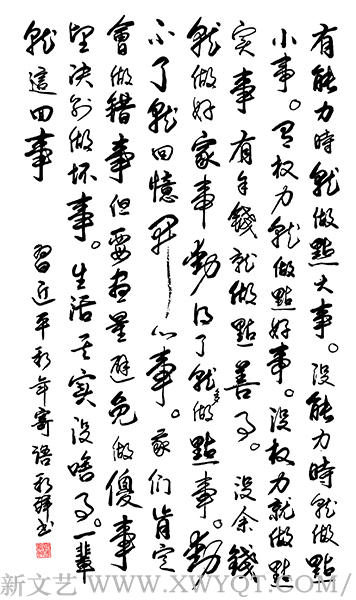 有能力時就做點大事。沒能力時就做點
小事。有权力就做點好事。沒权力就做點
实事有余錢就做點善事。沒余錢
就做好家事動得了就多做點事。動
不了就回憶开心事。我们肯定
會做錯事但要尽量避免做傻事
坚决别做坏事。生活其实沒啥事。一輩
就這四事
習近平新年寄語
新文艺 WWW.XWYQT.COM/